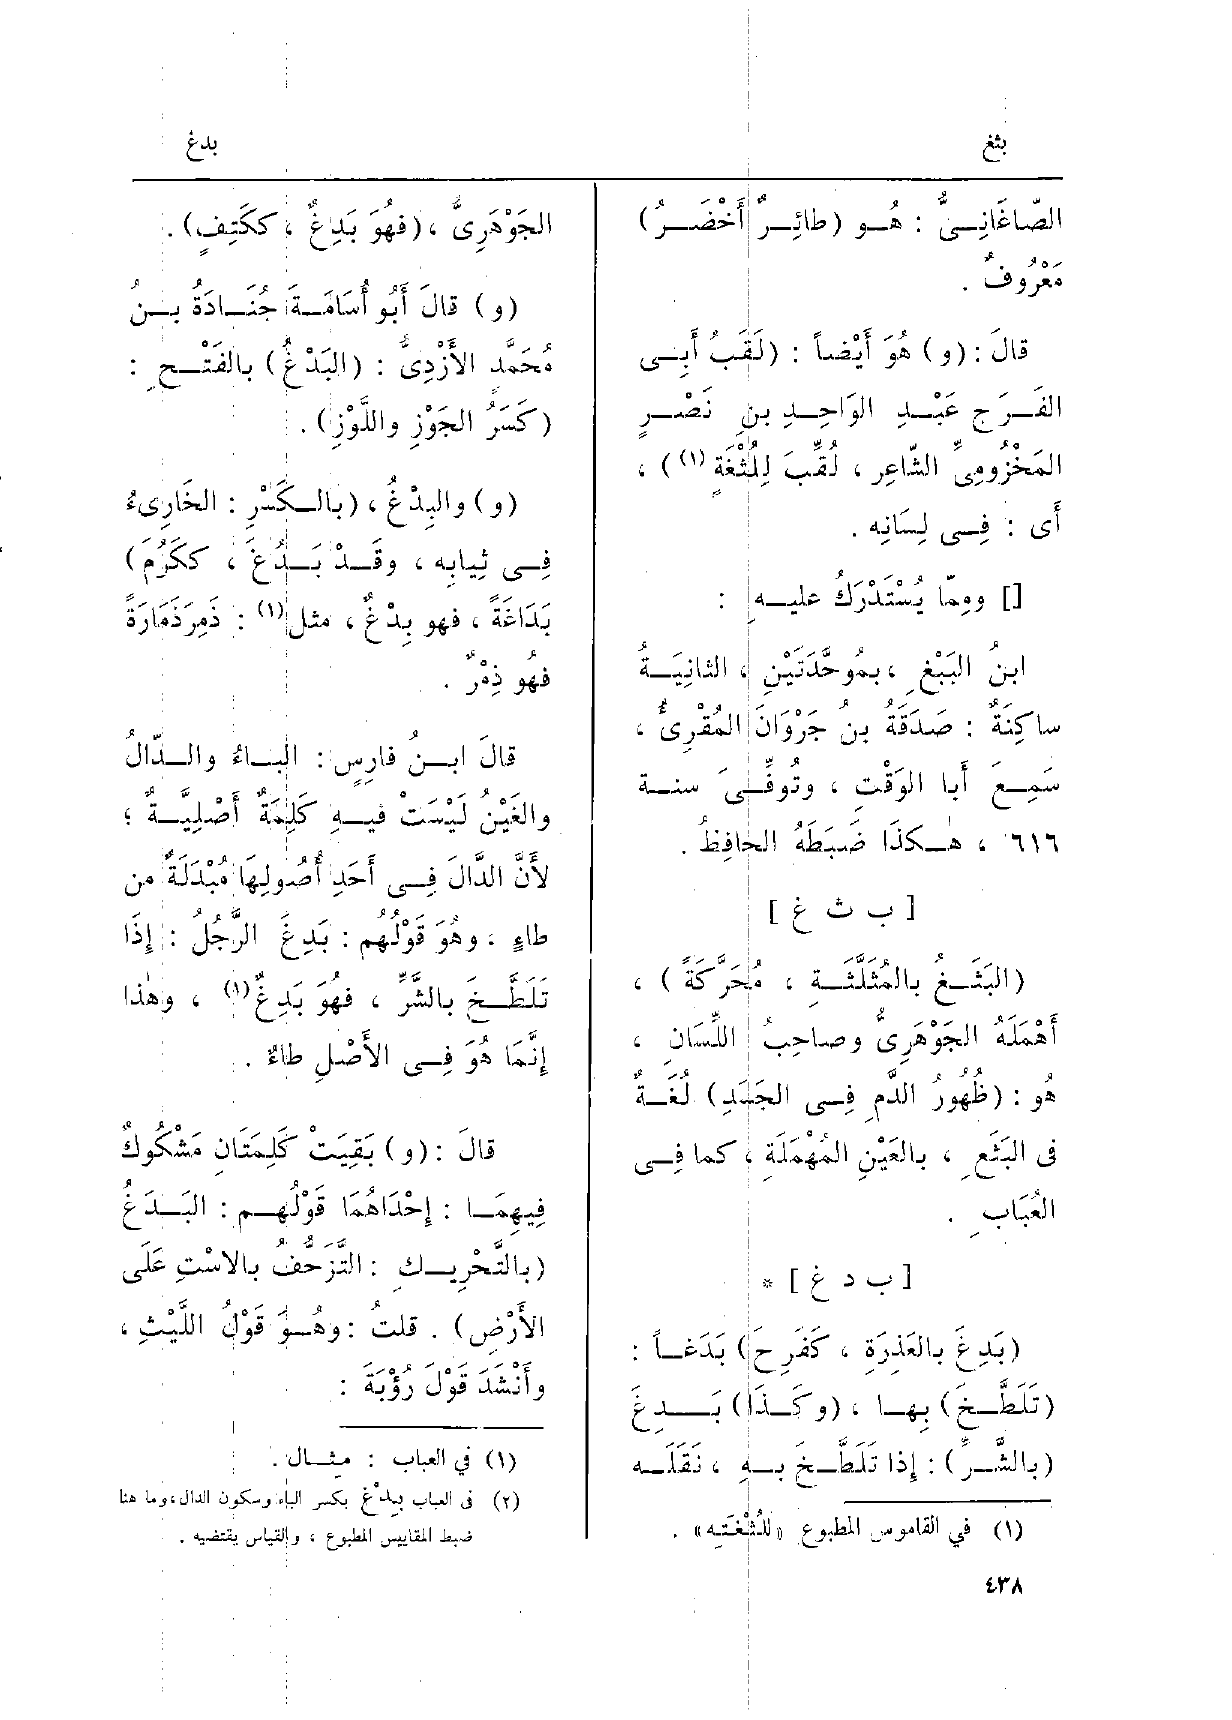 بثغ
بدغ
الصّاغَانِىُّ : هُو (طائِرٌ أَخْضَرُ)
مَعْرُوفٌ .
قالَ : (و) هُوَ أَيْضاً : (لَقَبُ أَبِى
الفَرَجِ عَبْدِ الوَاحِدِ بنِ نَصْرٍ
المَخْزُومِىِّ الشّاعِر ، لُقِّبَ لِلُثْغَةٍ (١)) ،
أَى : فِى لِسَانِه .
[] ومِمّا يُسْتَدْرَكُ عليه :
ابنُ البَبْغِ ، بمُوحَّدَتَيْنِ ، الثانِيَةُ
ساكِنَةٌ : صَدَقَةُ بنُ جَرْوَانَ المُقْرِئُ ،
سَمِعَ أَبا الوَقْتِ ، وتُوفِّىَ سنة
٦١٦ ، هٰكذَا ضَبَطَهُ الحافِظُ .
[ ب ث غ ]
(البَثَغُ بالمُثَلَّثَةِ ، مُحَرَّكَةً ) ،
أَهْمَلَهُ الجَوْهَرِىُّ وصاحِبُ اللِّسَانِ ،
هُو : (ظُهُورُ الدَّمِ فِى الجَسَدِ) لُغَةٌ
فى البَثَعِ ، بالعَيْنِ المُهْمَلَةِ ، كما فِى
العُبَابِ .
[ ب د غ ] *
(بَدِغَ بالعَذِرَةِ ، كَفَرِحَ) بَدَغاً :
(تَلَطَّخَ) بِها ، (وكَذَا) بَدِغَ
(بالشَّرِّ) : إِذا تَلَطَّخَ بِهِ ، نَقَلَه
(١) في القاموس المطبوع «للُثْغَتِه» .
٤٣٨
الجَوْهَرِىُّ ، (فهُوَ بَدِغٌ ، ككَتِفٍ) .
(و) قالَ أَبُو أُسَامَةَ جُنَادَةُ بنُ
مُحَمَّدٍ الأَزْدِىُّ : (البَدْغُ) بالفَتْحِ :
(كَسْرُ الجَوْزِ واللَّوْزِ) .
(و) والبِدْغُ ، (بالكَسْرِ : الخَارِىءُ
فِى ثِيابِه ، وقَدْ بَدُغَ ، ككَرُمَ)
بَدَاغَةً ، فهو بِدْغٌ ، مثل (١) : ذَمِرَ ذَمَارَةً
فهُو ذِمْرٌ .
قالَ ابنُ فارِسٍ : الباءُ والدّالُ
والغَيْنُ لَيْسَتْ فيهِ كَلِمَةٌ أَصْلِيَّةٌ ؛
لأَنَّ الدَّالَ فِى أَحَدِ أُصُولِهَا مُبْدَلَةٌ من
طاءٍ ، وهُوَ قَوْلُهُم : بَدِغَ الرَّجُلُ : إِذَا
تَلَطَّخَ بالشَّرِّ ، فهُوَ بَدِغٌ (١) ، وهٰذا
إِنَّمَا هُوَ فِى الأَصْلِ طاءٌ .
قالَ : (و) بَقِيَتْ كَلِمَتَانِ مَشْكُوكٌ
فِيهِمَا : إِحْدَاهُمَا قَوْلُهم : البَدَغُ
(بالتَّحْرِيكِ : التَّزَحُّفُ بالاسْتِ عَلَى
الأَرْضِ) . قلتُ : وهُوَ قَوْلُ اللَّيْثِ ،
وأَنْشَدَ قَوْلَ رُؤْبَةَ :
(١) في العباب : مِثال .
(٢) فى العباب بِدْغ بكسر الباء وسكون الدال ، وما هنا
ضبط المقاييس المطبوع ، والقياس يقتضيه .